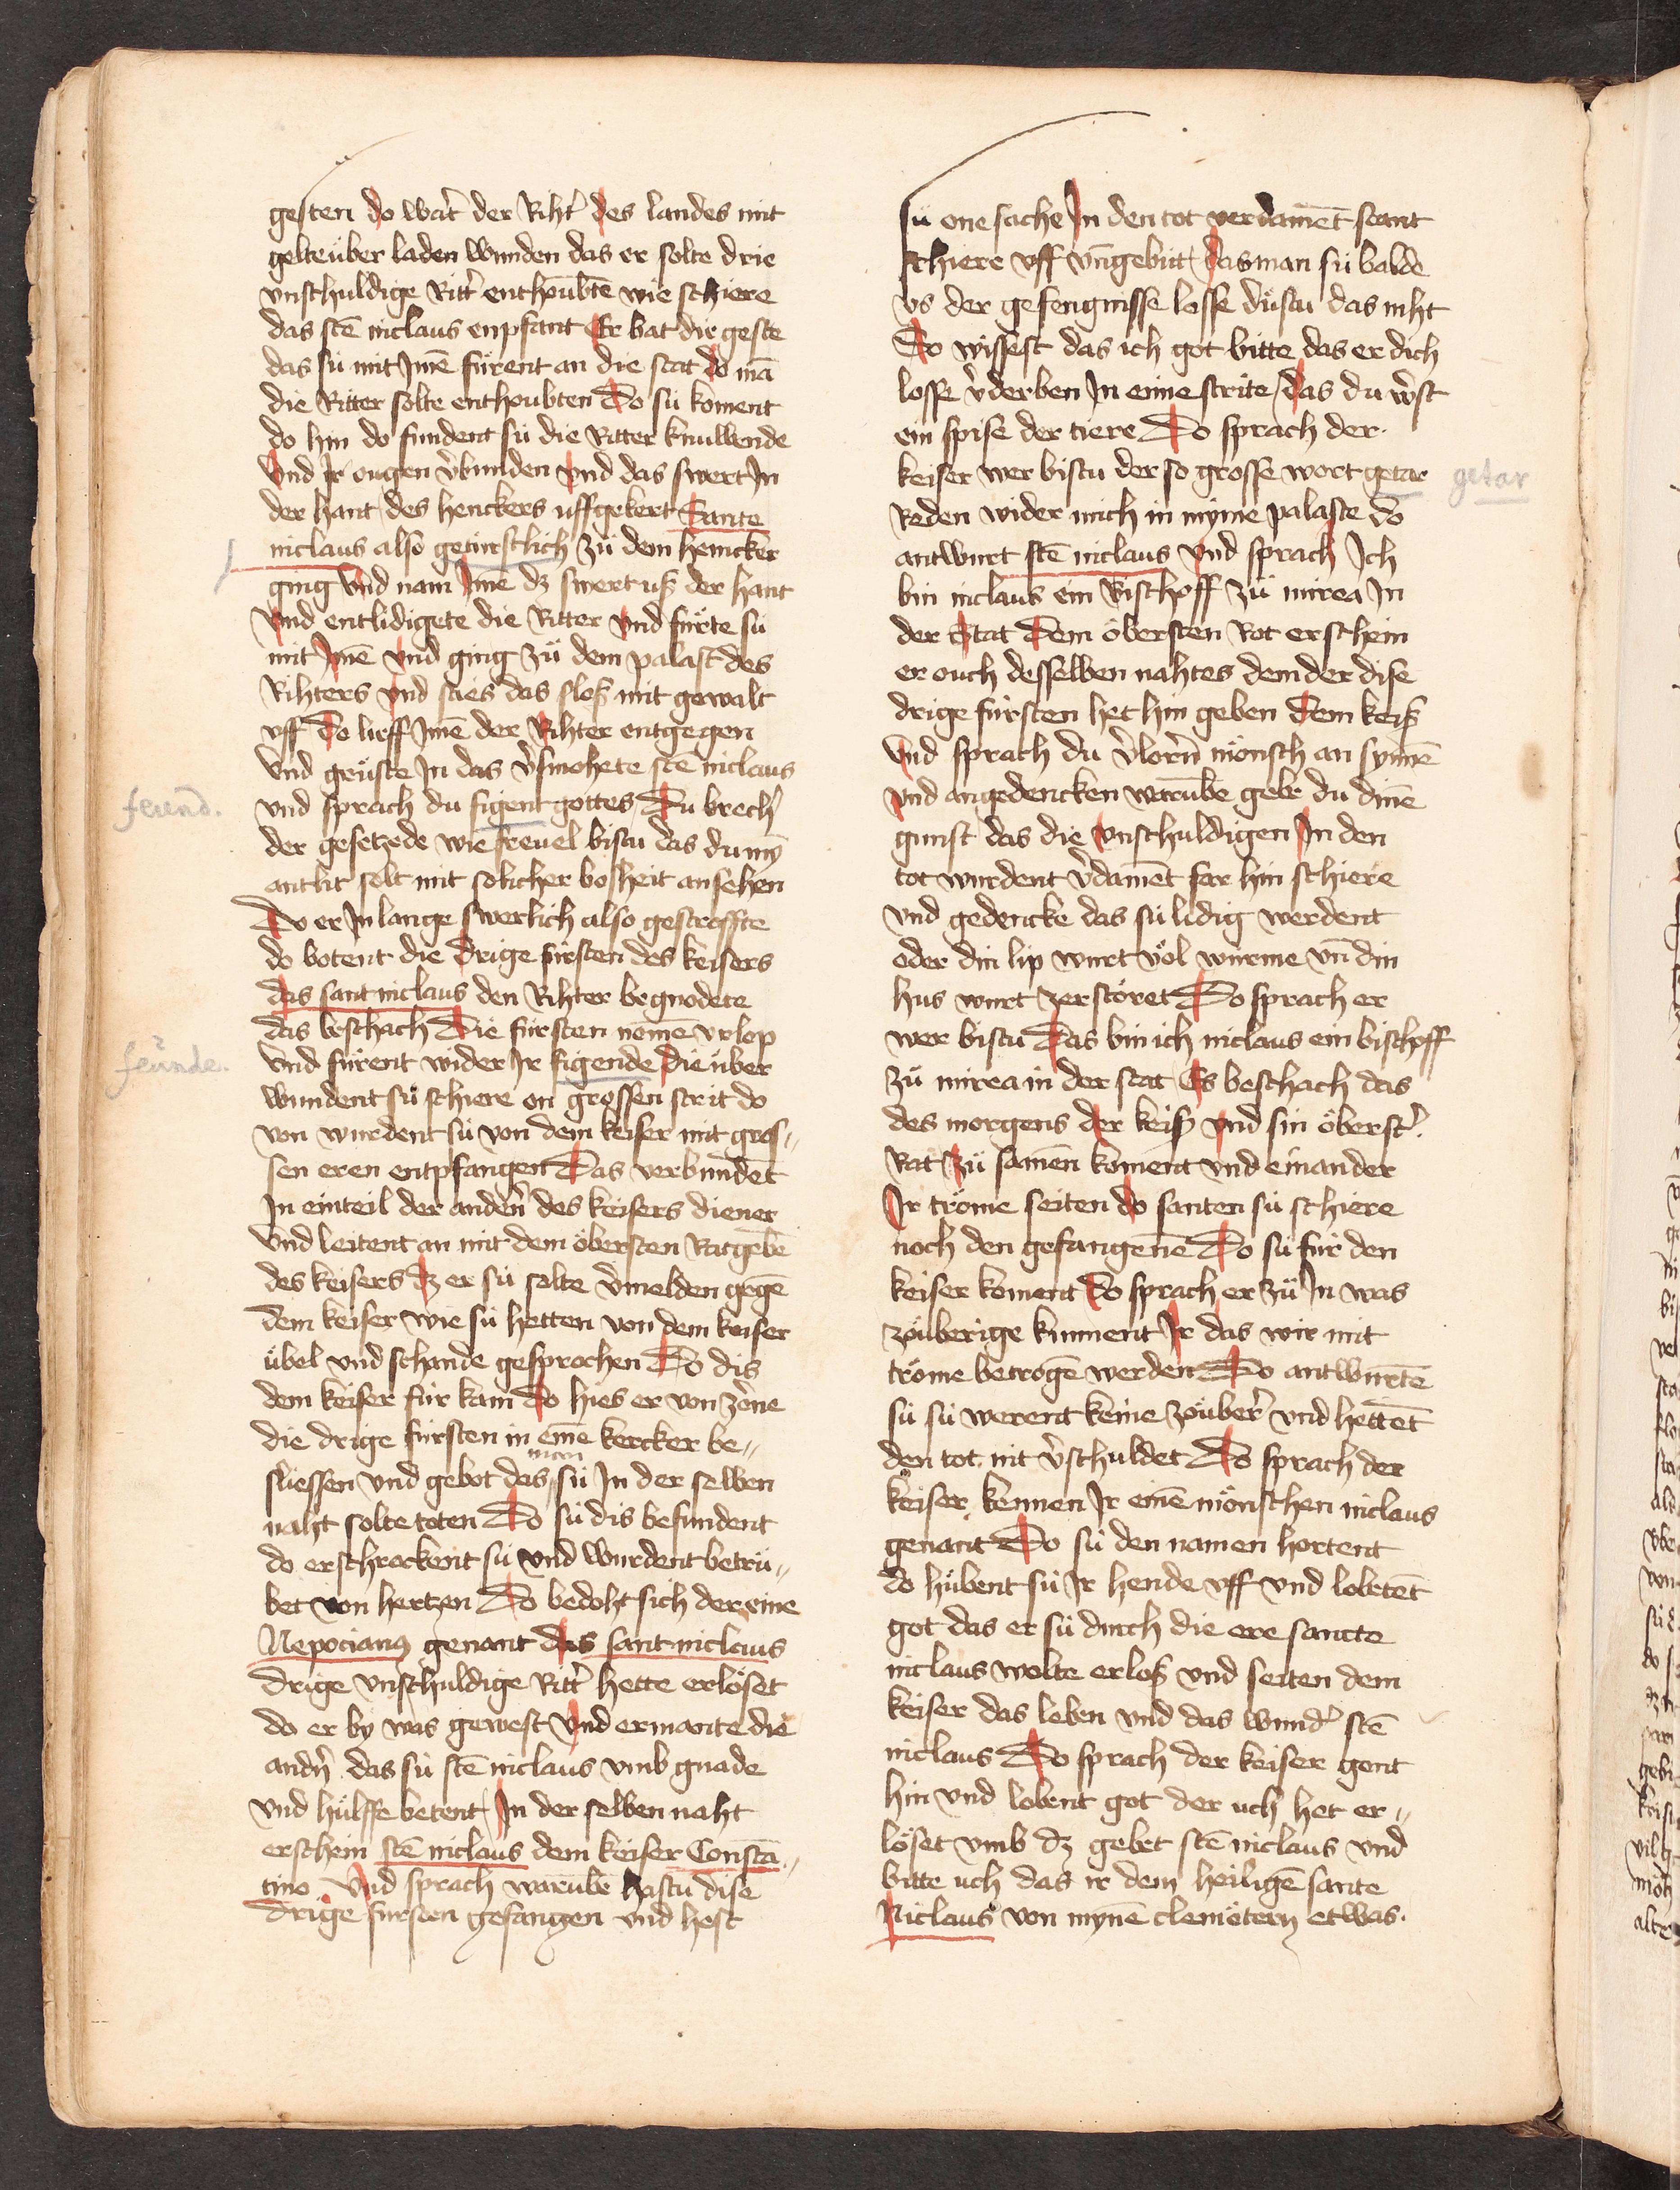 gesten do wart der Riht' des landes mit
gelte úber laden wunden das er solte drie
vnschuldige Ritt' enthoubtē wie schiere
das stē niclaus enpfant Er bat die geste
das sú mit Jmē fúrent an die stat do mā
die Ritter solte enthoubten Do sú koment
do hin do fundent sú die Ritter knuwende
vnd Jr ougen v'bunden vnd das swert Jn
der hant des henckers uffgekert Sante
niclaus also getúrstlich zú dem hencker
ging vnd nam Jme dz swert uß der hant
vnd entlidigete die Ritter vnd fúrte sú
mit Jmē vnd ging zú dem palast des
Rihters vnd sties das sloß mit gewalt
vff Do lieff Jmē der Rihter entgegen
vnd grúste Jn das v'smohete stē niclaus
feünd.
vnd sprach du figent gottes Du brech'
der gesetzede wie frevel bistu das du mȳ
antlit solt mit solicher bosheit ansehen
Do er Jn lange swerlich also gestroffte
do botent die drige fúrsten des keisers
das sant niclaus den Rihter begnodete
das beschach Die fúrsten nemē vrlop
feünde.
vnd fúrent wider Jr figende die úber
wundent sú schiere on grossen strit do
von wurdent sú von dem keiser mit gros„
sen eren entpfangen Das verbundēt
Jn ein teil der anden' des keisers diener
vnd leitent an mit dem óbersten Ratgebē
des keisers dz er sú solte v'melden gegē
dem keiser wie sú hetten von dem keiser
úbel vnd schande gesprochen Do dis
dem keiser fúr kam do hies er von z'ne
die drige fúrsten in eīne kercker be„
sliessen vnd gebot das man sú Jn der selben
naht solte toten Do sú dis befundent
do erschrockent sú vnd wurdent betrú„
bet von hertzen Do bedoht sich der eine
Nepocianus genant das sant niclaus
drige vnschuldige Ritt' hette erlóset
do er by was gewest vnd ermante die
andn' das sú stē niclaus vmb gnade
vnd húlffe betent Jn der selben naht
erschein stē niclaus dem keiser Constā„
tino vnd sprach warūbe hastu dise
drige fúrsten gefangen vnd hest
sú one sache Jn den tot verdamēt stant
schiere vff vn̄ gebút das man sú balde
vs der gefengnisse losse dústu das niht
So wissest das ich got bitte das er dich
losse v'derben Jn eime strite das du w'st
ein spise der tiere Do sprach der
keiser wer bistu der so grosse wort getar
getar
Reden wider mich in myme palaste do
antwurt stē niclaus vnd sprach Jch
bin niclaus ein Bischoff zú mirea Jn
der Stat Dem óbersten Rot erschein
er ouch desselben nahtes dem der dise
drige fúrsten het hin geben dem keiß
vnd sprach du v'lorn' mónsch an synnē
vnd angedencken warūbe gebe du dinē
gunst das die vnschuldigen Jn den
tot wurdent v'damēt far hin schiere
vnd gedencke das sú lidig werdent
oder din lip wurt vól wúrme vn̄ din
hus wurt zerstóret Do sprach er
wer bistu Das bin ich niclaus ein bischoff
zú mirea in der stat Es beschach das
des morgens der keiß vnd sin óberst'
Rat zú samen koment vnd einander
Jr tróme seiten do santen sú schiere
noch den gefangenē Do sú fúr den
keiser koment do sprach er zú Jn was
zóuberige kunnent Jr das wir mit
tróme betrogē werden Do antwurtē
sú sú werent keine zóuber' vnd hettēt
den tot nit v'schuldet Do sprach der
keiser kennen Jr einē mónschen niclaus
genant Do sú den namen hortent
do húbent sú Jr hende vff vnd lobtēt
got das er sú durch die ere sancte
niclaus wolte erloß vnd seiten dem
keiser das leben vnd das wund' stē
niclaus Do sprach der keiser gent
hin vnd lobent got der uch het er„
lóset vmb dz gebet stē niclaus vnd
bitte uch das ir dem heiligē sante
Niclaus von mynē clemótern etwas.